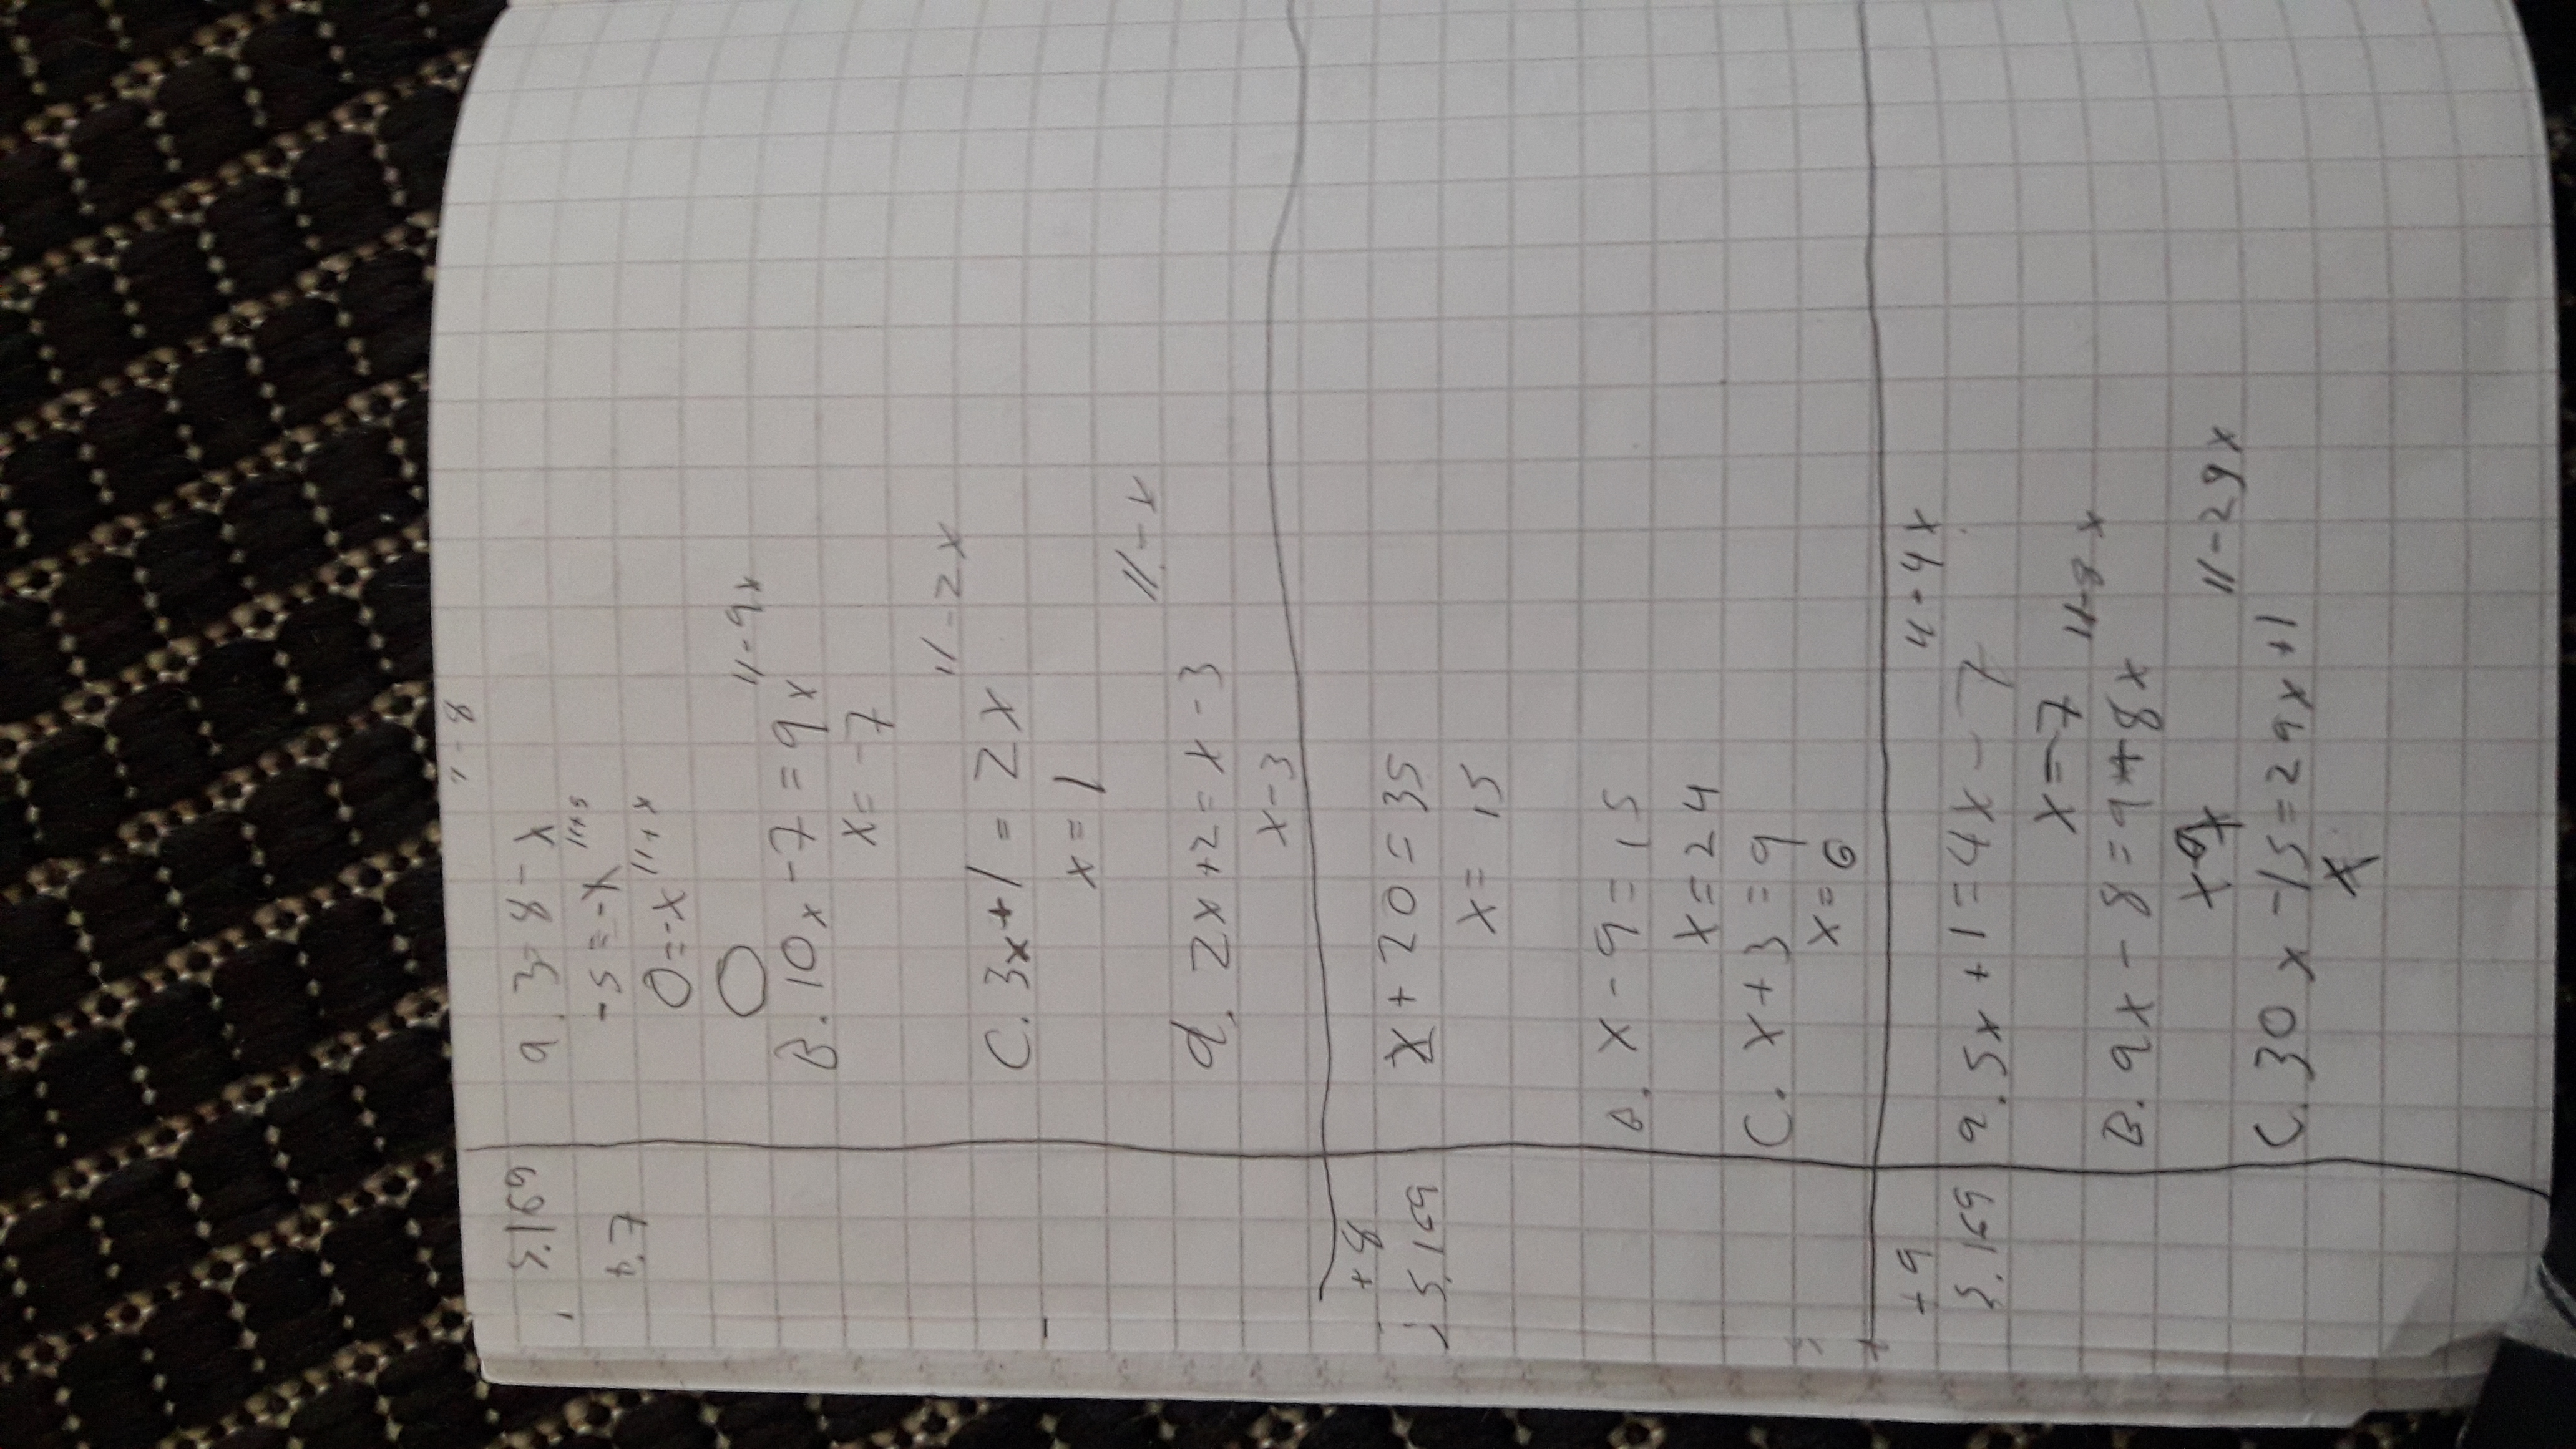 //-8
S.169 a. 3=8-x
-5=-x //+5
t.7 0=-x //+x
0
//-9x
B. 10x-7=9x
x=-7
//-2x
C. 3x+1=2x
x=1
//-x
d. 2x+2=x-3
x-3
+8
S.169 x+20=35
x=15
B. x-9=15
x=24
C. x+3=9
x=6
+9 //-4x
S.169 a. 5x+1=4x-7
x=-7
//-8x
B. 9x-8=9+8x
x
//-29x
C. 30x-15=29x+1
x